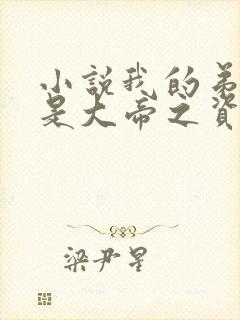 小説我的弟
是大帝之資
梁尹星